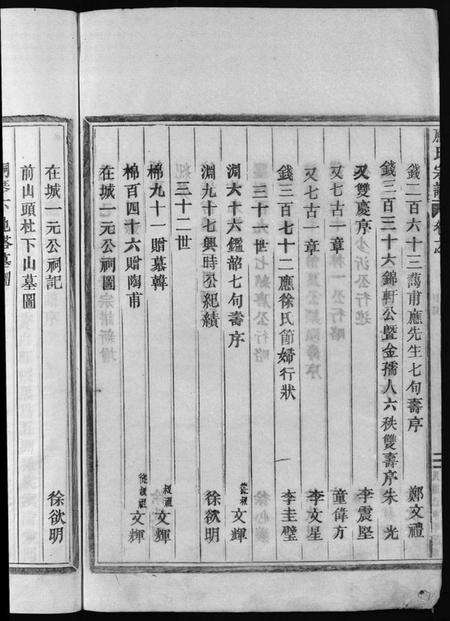 應氏宗譜
錢二百六十三蕅甫應先生七旬壽序 鄭文禮
錢三百三十六錦軒公暨金孺人六秩雙壽序 朱光
又雙慶序 李震堅
又七古一章 童偉方
又七古一章 李文星
錢三百七十二應徐氏節婦行狀 李圭璧
三十一世
淵六十六鑑韶七旬壽序 從叔文輝
淵九十七興時公紀績 徐欲明
三十二世
棉九十一贈墓韓 叔祖文輝
棉百四十六贈陶甫 從叔祖文輝
在城一元公祠圖
在城一元公祠記 徐欲明
前山頭杜下山墓圖